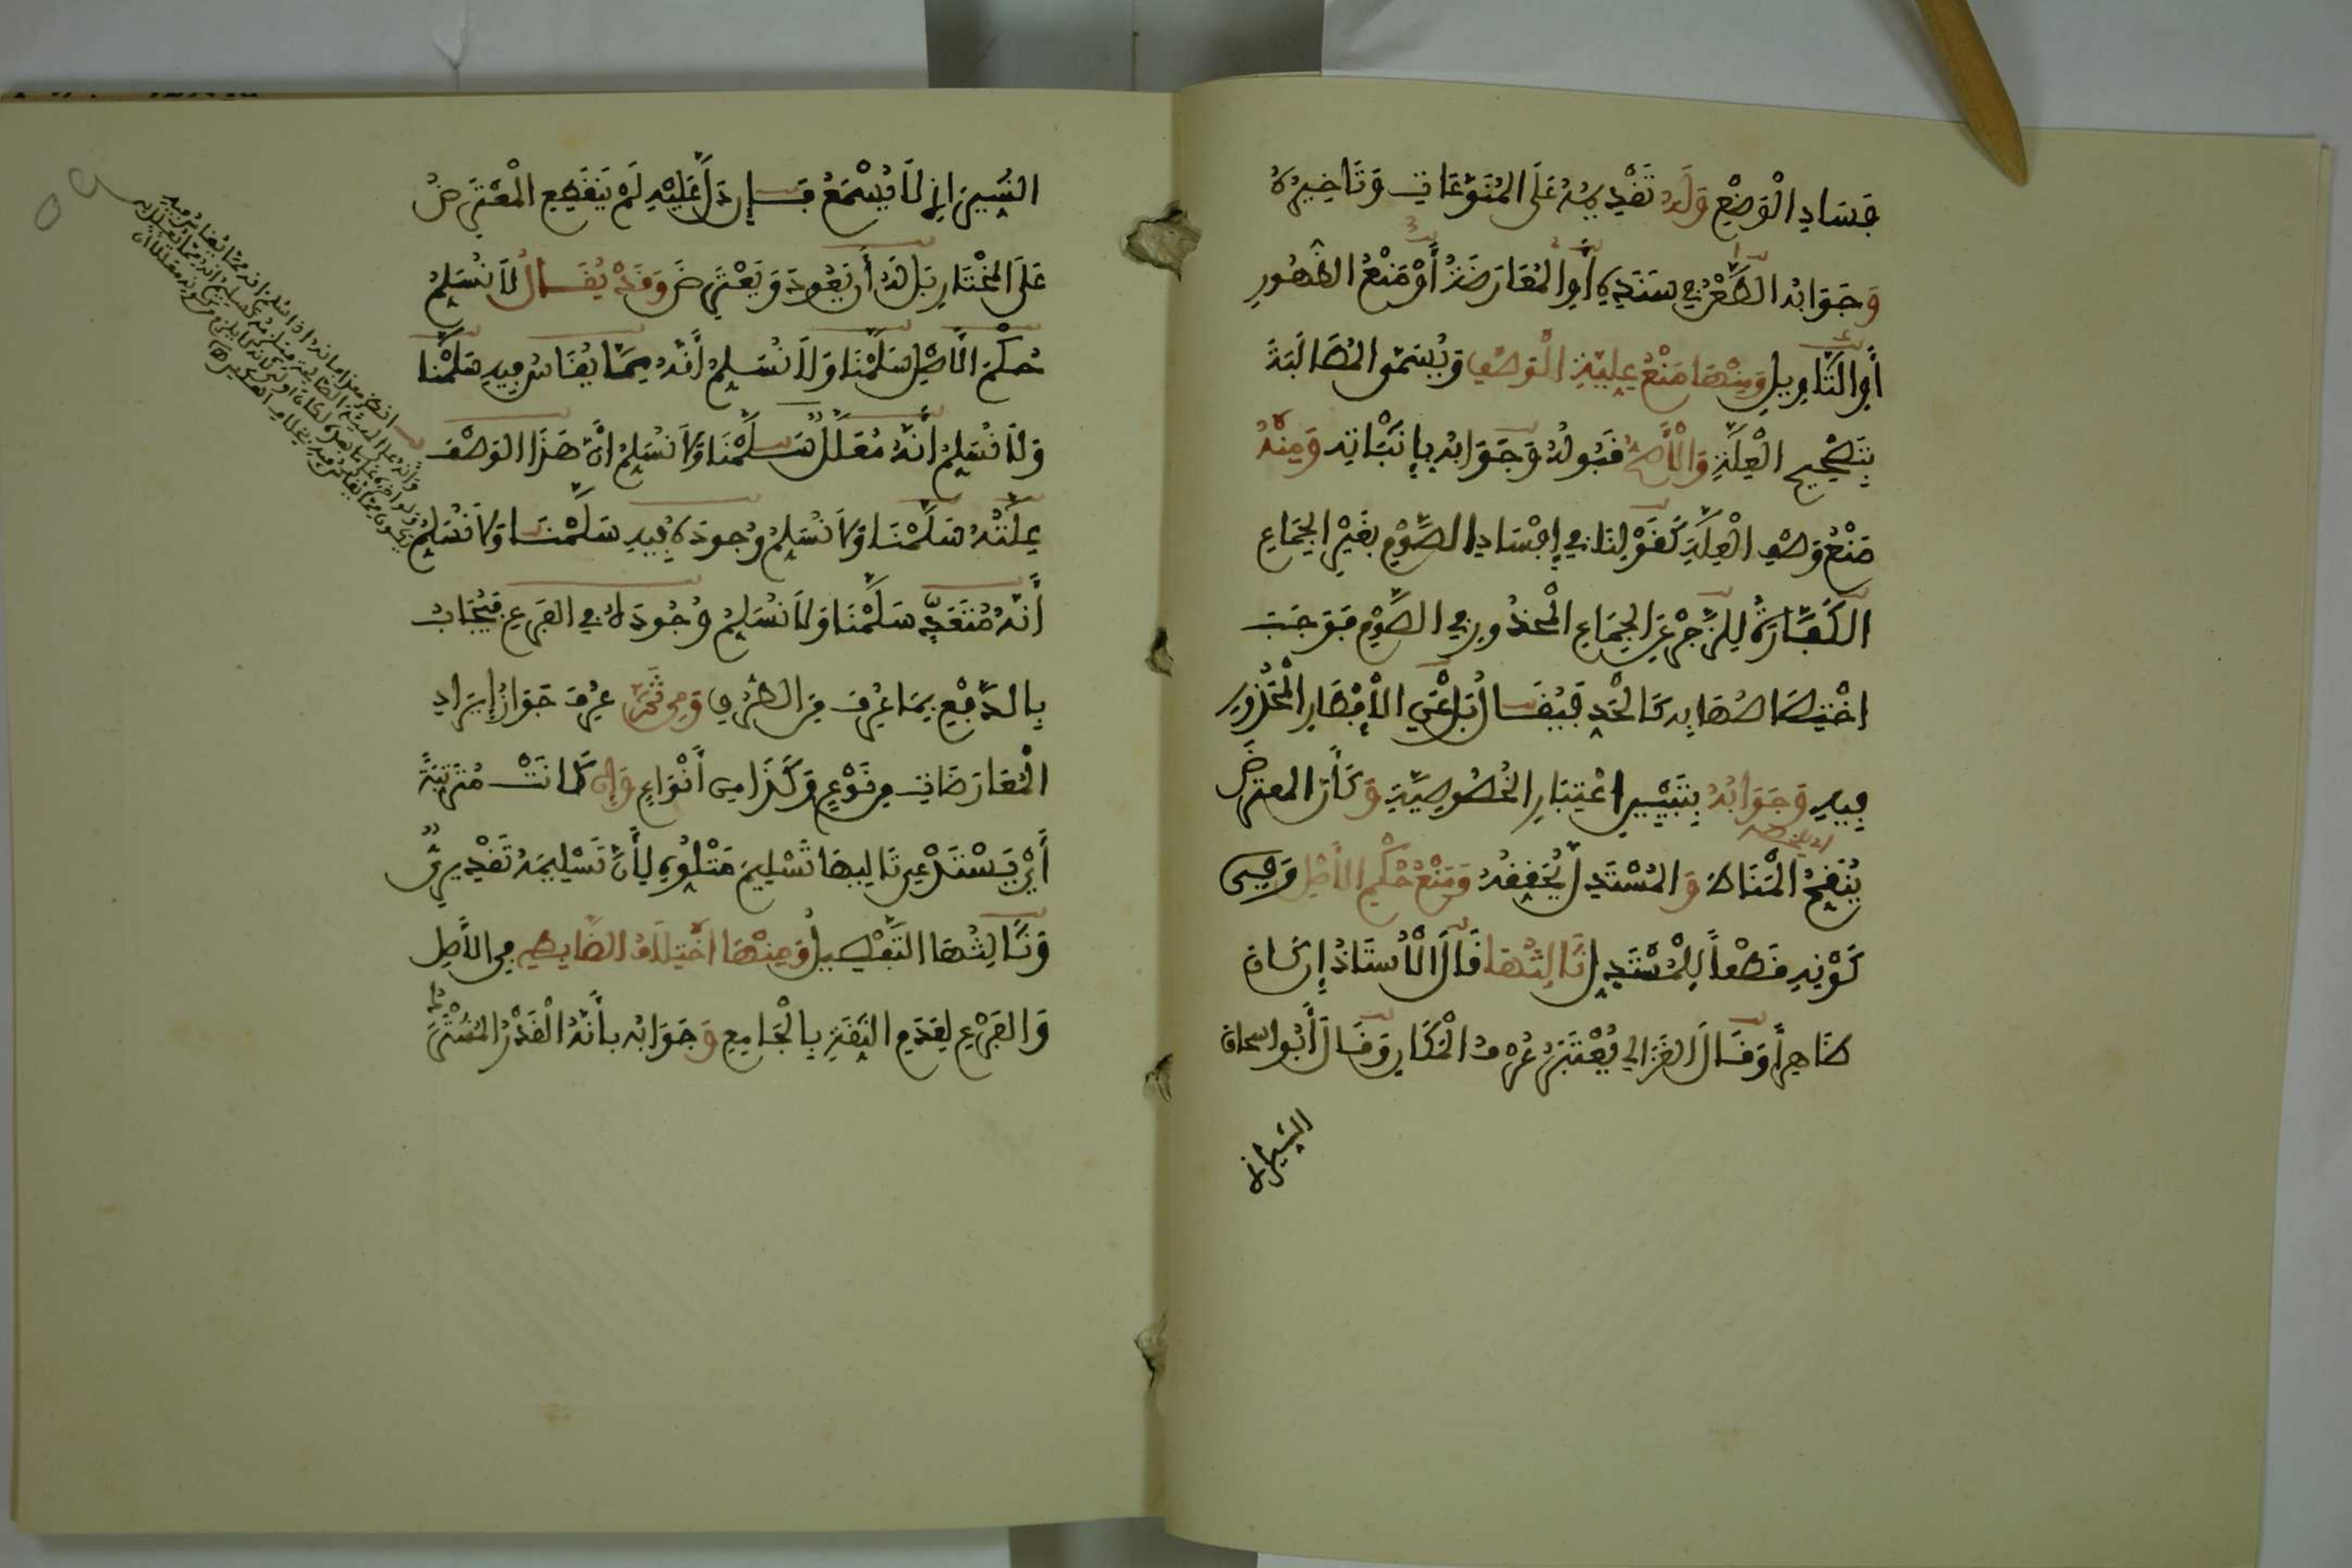 فَسَادِ الْوَضْعِ وَلَهُ تَقْدِيمُهُ عَلَى الْمُنَوَّعَاتِ وَتَاخِيرُهُ
وَجَوَابُهُ الطَّعْنُ فِي سَنَدِهِ أَوِ الْمُعَارَضَةُ أَوْ مَنْعُ الظُّهُورِ
أَوِ التَّاوِيلُ وَمِنْهَا مَنْعُ عِلِّيَّةِ الْوَصْفِ وَيُسَمَّى الْمُطَالَبَةَ
بِتَصْحِيحِ الْعِلَّةِ وَالْأَصَحُّ قَبُولُهُ وَجَوَابُهُ بِإِثْبَاتِهِ وَمِنْهُ
مَنْعُ وَصْفِ الْعِلَّةِ كَقَوْلِنَا فِي إِفْسَادِ الصَّوْمِ بِغَيْرِ الْجِمَاعِ
الْكَفَّارَةُ لِلزَّجْرِ عَنِ الْجِمَاعِ الْمَحْذُورِ فِي الصَّوْمِ فَوَجَبَ
اخْتِصَاصُهَا بِهِ كَالْحَدِّ فَيُقَالُ بَلْ عَنِ الْإِفْطَارِ الْمَحْذُورِ
فِيهِ وَجَوَابُهُ بِتَبْيِينِ اعْتِبَارِ الْخُصُوصِيَّةِ وَكَأَنَّ الْمُعْتَرِضَ
يُنَقِّحُ الْمَنَاطَ وَالْمُسْتَدِلَّ يُحَقِّقُهُ وَمَنْعُ حُكْمِ الْأَصْلِ وَفِي
كَوْنِهِ قَطْعاً لِلْمُسْتَدِلِّ ثَالِثُهَا قَالَ الْأُسْتَاذُ إِنْ كَانَ
ظَاهِراً وَقَالَ الْغَزَالِي يُعْتَبَرُ عُرْفُ الْمَكَانِ وَقَالَ أَبُو إِسْحَاقَ
الشيرازي
الشِّيرَازِي لَا يُسْمَعُ فَإِنْ دَلَّ عَلَيْهِ لَمْ يَنْقَطِعِ الْمُعْتَرِضُ
عَلَى الْمُخْتَارِ بَلْ لَهُ أَنْ يَعُودَ وَيَعْتَرِضَ وَقَدْ يُقَالُ لَا نُسَلِّمُ
حُكْمَ الْأَصْلِ سَلَّمْنَا وَلَا نُسَلِّمُ أَنَّهُ مِمَّا يُقَاسُ فِيهِ سَلَّمْنَا
وَلَا نُسَلِّمُ أَنَّهُ مُعَلَّلٌ سَلَّمْنَا وَلَا نُسَلِّمُ أَنَّ هَذَا الْوَصْفَ
عِلَّتُهُ سَلَّمْنَا وَلَا نُسَلِّمُ وُجُودَهُ فِيهِ سَلَّمْنَا وَلَا نُسَلِّمُ
أَنَّهُ مُتَعَدٍّ سَلَّمْنَا وَلَا نُسَلِّمُ وُجُودَهُ فِي الْفَرْعِ فَيُجَابُ
بِالدَّفْعِ بِمَا عُرِفَ مِنَ الطُّرُقِ وَمِنْ ثَمَّ عُرِفَ جَوَازُ إِيرَادِ
الْمُعَارَضَاتِ مِنْ نَوْعٍ وَكَذَا مِنْ أَنْوَاعٍ وَإِنْ كَانَتْ مُتَرَتِّبَةً
أَيْ يَسْتَدْعِي تَالِيهَا تَسْلِيمَ مَتْلُوِّهِ لِأَنَّ تَسْلِيمَهُ تَقْدِيرِيٌّ
وَثَالِثُهَا التَّفْصِيلُ وَمِنْهَا اخْتِلَافُ الضَّابِطِ فِي الْأَصْلِ
وَالْفَرْعِ لِعَدَمِ الثِّقَةِ بِالْجَامِعِ وَجَوَابُهُ بِأَنَّهُ الْقَدْرُ الْمُشْتَرَكُ